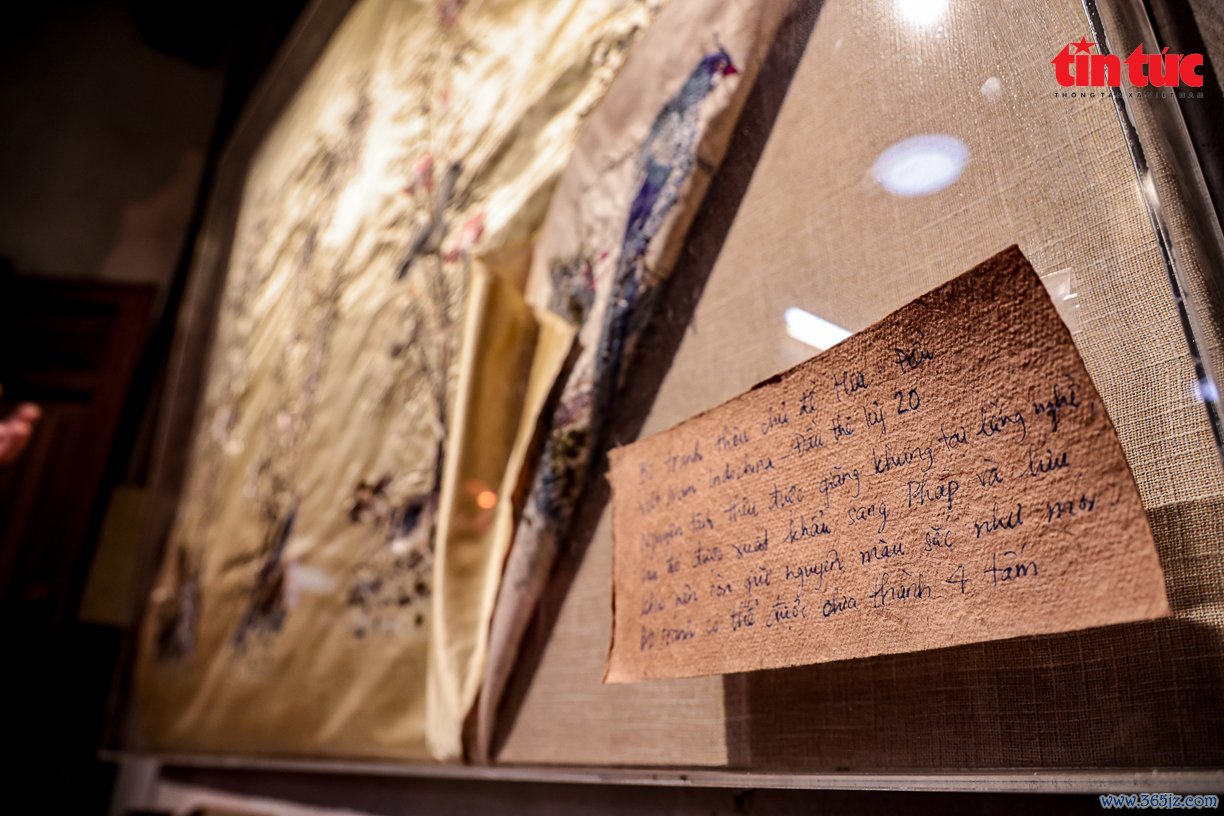 tin tức
THÔNG TẤN XÃ VIỆT NAM
Bộ tranh thêu chủ đề Hoa Điểu
Việt Nam Indochina Đầu thế kỷ 20
Nguyên tích thêu được giăng khung tại làng nghề,
được xuất khẩu sang Pháp và lưu
nên còn giữ nguyên màu sắc như mới
Bộ tranh có thể được chia thành 4 tấm
www.365jz.com